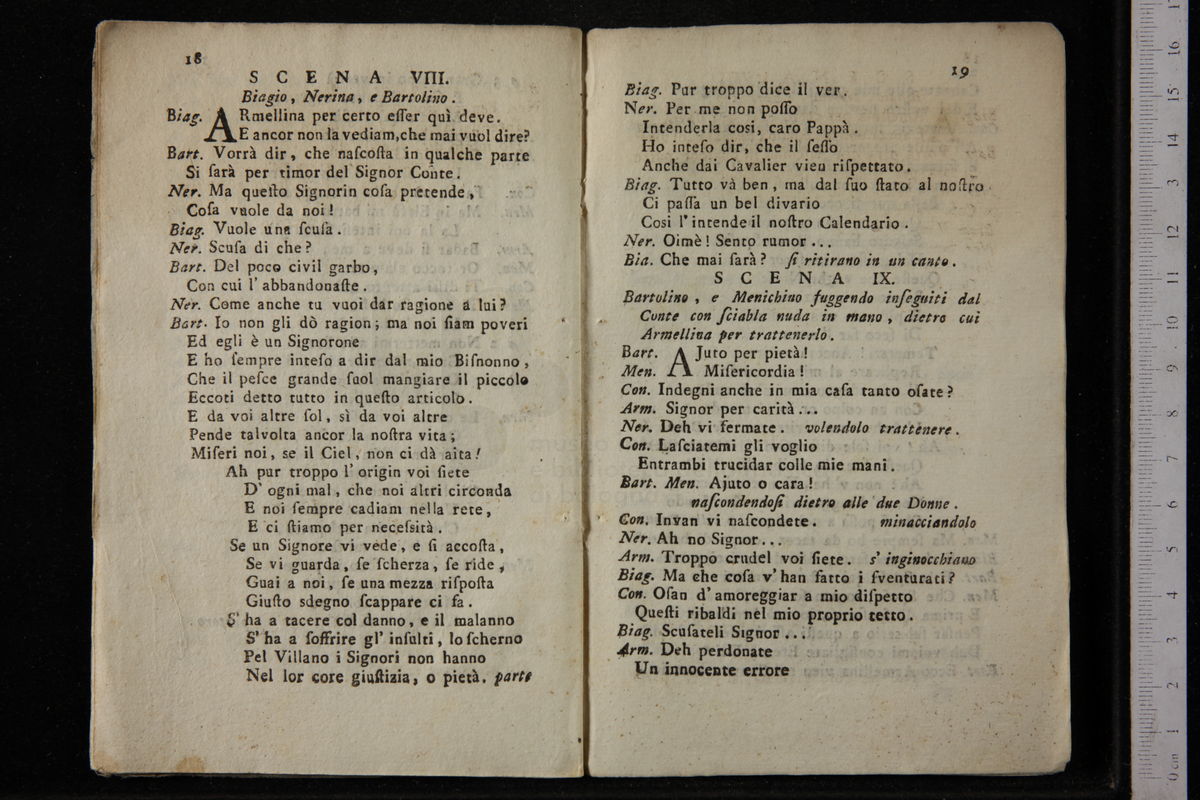 18
SCENA VIII.
Biagio, Nerina, e Bartolino.
Biag. ARmellina per certo eſſer quì deve.
E ancor non la vediam, che mai vuol dire?
Bart. Vorrà dir, che naſcoſta in qualche parte
Si ſarà per timor del Signor Conte.
Ner. Ma queſto Signorin coſa pretende,
Coſa vuole da noi!
Biag. Vuole una ſcuſa.
Ner. Scuſa di che?
Bart. Del poco civil garbo,
Con cui l' abbandonaſte.
Ner. Come anche tu vuoi dar ragione a lui?
Bart. Io non gli dò ragion; ma noi ſiam poveri
Ed egli è un Signorone
E ho ſempre inteſo a dir dal mio Biſnonno,
Che il peſce grande ſuol mangiare il piccolo
Eccoti detto tutto in queſto articolo.
E da voi altre ſol, sì da voi altre
Pende talvolta ancor la noſtra vita;
Miſeri noi, se il Ciel, non ci dà aita!
Ah pur troppo l' origin voi ſiete
D' ogni mal, che noi altri circonda
E noi ſempre cadiam nella rete,
E ci ſtiamo per neceſsità.
Se un Signore vi vede, e ſi accoſta,
Se vi guarda, ſe ſcherza, ſe ride,
Guai a noi, ſe una mezza riſpoſta
Giuſto sdegno ſcappare ci fa.
S' ha a tacere col danno, e il malanno
S' ha a ſoffrire gl' inſulti, lo ſcherno
Pel Villano i Signori non hanno
Nel lor core giuſtizia, o pietà. parte
19
Biag. Pur troppo dice il ver.
Ner. Per me non poſſo
Intenderla cosi, caro Pappà.
Ho inteſo dir, che il ſeſſo
Anche dai Cavalier vien riſpettato.
Biag. Tutto và ben, ma dal ſuo ſtato al noſtro
Ci paſſa un bel divario
Cosi l' intende il noſtro Calendario.
Ner. Oimè! Sento rumor ...
Bia. Che mai ſarà? ſi ritirano in un canto.
SCENA IX.
Bartolino, e Menichino fuggendo inſeguiti dal
Conte con ſciabla nuda in mano, dietro cui
Armellina per trattenerlo.
Bart. AJuto per pietà!
Men. Miſericordia!
Con. Indegni anche in mia caſa tanto oſate?
Arm. Signor per carità ...
Ner. Deh vi fermate. volendolo trattenere.
Con. Laſciatemi gli voglio
Entrambi trucidar colle mie mani.
Bart. Men. Ajuto o cara!
naſcondendoſi dietro alle due Donne.
Con. Invan vi naſcondete. minacciandolo
Ner. Ah no Signor ...
Arm. Troppo crudel voi ſiete. s' inginocchiano
Biag. Ma che coſa v' han fatto i ſventurati?
Con. Oſan d' amoreggiar a mio diſpetto
Queſti ribaldi nel mio proprio tetto.
Biag. Scuſateli Signor ...
Arm. Deh perdonate
Un innocente errore
0 cm 1 2 3 4 5 6 7 8 9 10 11 12 13 14 15 16 17